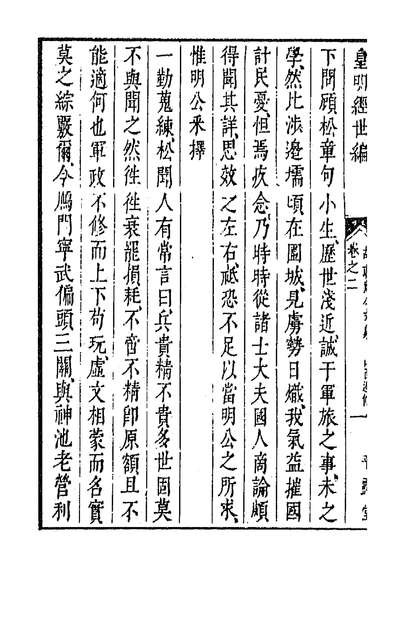 皇明經世編
卷之二
下問顧松章句小生歷世淺近誠于軍旅之事未之
學然比涉邊壖頃在圍城見虜勢日熾我氣益摧國
計民憂但焉疚念乃時時從諸士大夫國人商論頗
得聞其詳思效之左右祗恐不足以當明公之所求
惟明公釆擇
一勤蒐練松聞人有常言曰兵貴精不貴多世固莫
不與聞之然徃徃衰罷損耗不啻不精卽原額且不
能適何也軍政不修而上下苟玩虛文相蒙而名實
莫之綜覈爾今鴈門寧武偏頭三關與神池老營利